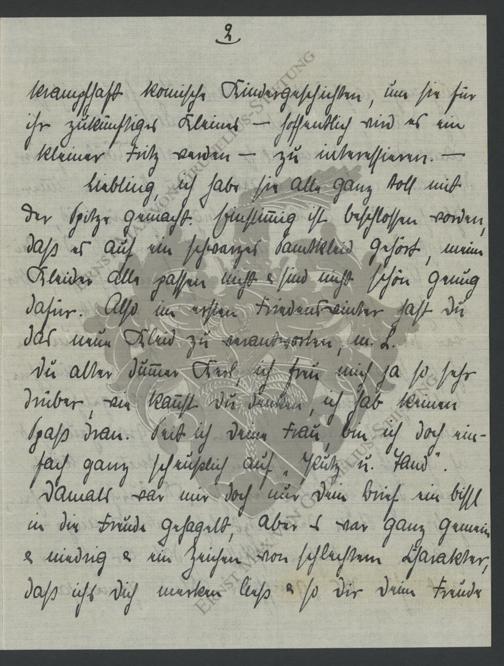 2
krampfhaft komische Kindergeschichten, um sie für
ihr zukünftiges Kleines – hoffentlich wird es ein
kleiner Fritz werden – zu interessieren. –
Liebling, ich habe sie alle ganz toll mit
der Spitze gemacht. Einstimmig ist beschlossen worden,
daß es auf ein schwarzes Samtkleid gehört, meine
Kleider alle passen nicht & sind nicht schön genug
dafür. Also im ersten Friedenswinter hast du
das neue Kleid zu verantworten, m. L.
Du alter dummer Kerl, ich freu mich ja so sehr
drüber, wie kannst du denken, ich hab keinen
Spaß dran. Seit ich deine Frau, bin ich doch ein-
fach ganz scheußlich auf „Putz u. Tand".
Damals war mir doch nur dein Brief ein bissl
in die Freude gehagelt, aber es war ganz gemein
& niedrig & ein Zeichen von schlechtem Charakter,
daß ichs dich merken ließ & so dir deine Freude
ERNST MAXIMILIAN CORNELIUS-STIFTUNG